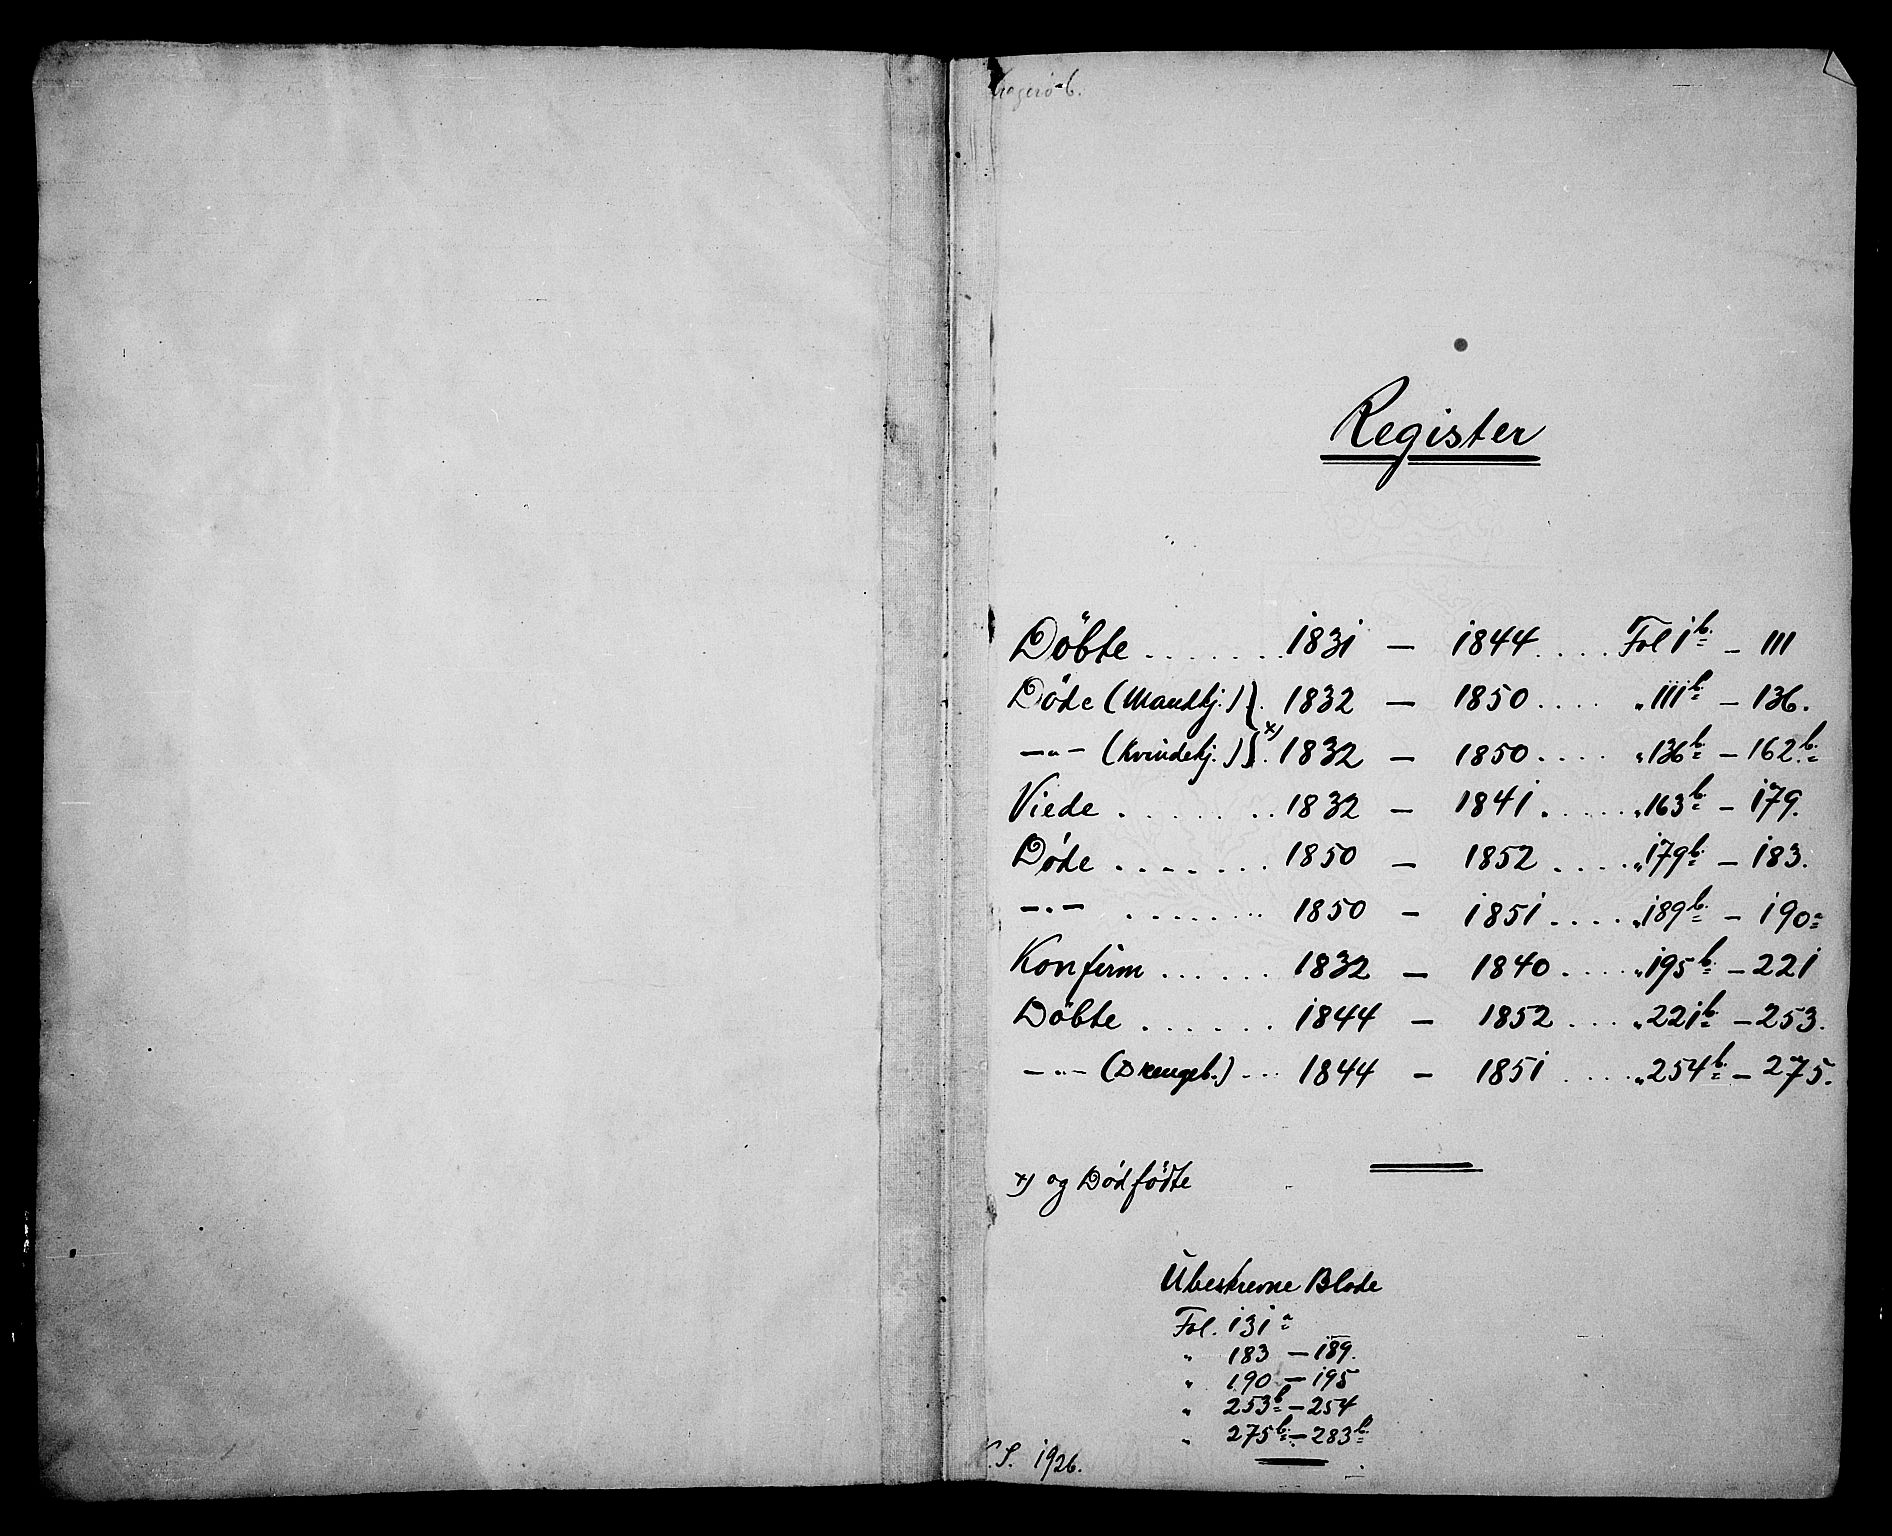 6.
Register
Döbte ....... 1831 — 1844 .... Fol 1 b. — 111
Döde (Mandkj.) . 1832 — 1850 .... „ 111 b. — 136.
—„— (Kvindekj.) x) . 1832 — 1850 .... „ 136 b. — 162 b.
Viede ....... 1832 — 1841 ...... „ 163 b. — 179.
Döde ....... 1850 — 1852 ..... „ 179 b. — 183.
—„— ....... 1850 — 1851 ..... „ 189 b. — 190 a
Konfirm ...... 1832 — 1840 ..... „ 195 b. — 221
Döbte ...... 1844 — 1852 .... „ 221 b. — 253.
—„— (Drengeb.) ... 1844 — 1851 ..... „ 254 b. — 275.
x) og Dödfödte
Ubeskrevne Blade
Fol. 131 a
„ 183 — 189.
„ 190 — 195
„ 253 b — 254
„ 275 b. — 283 b.
S. 1926.